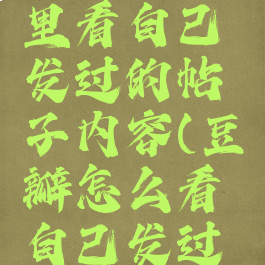 里看自己
发过的帖
子内容(豆
瓣怎么看
自己发过